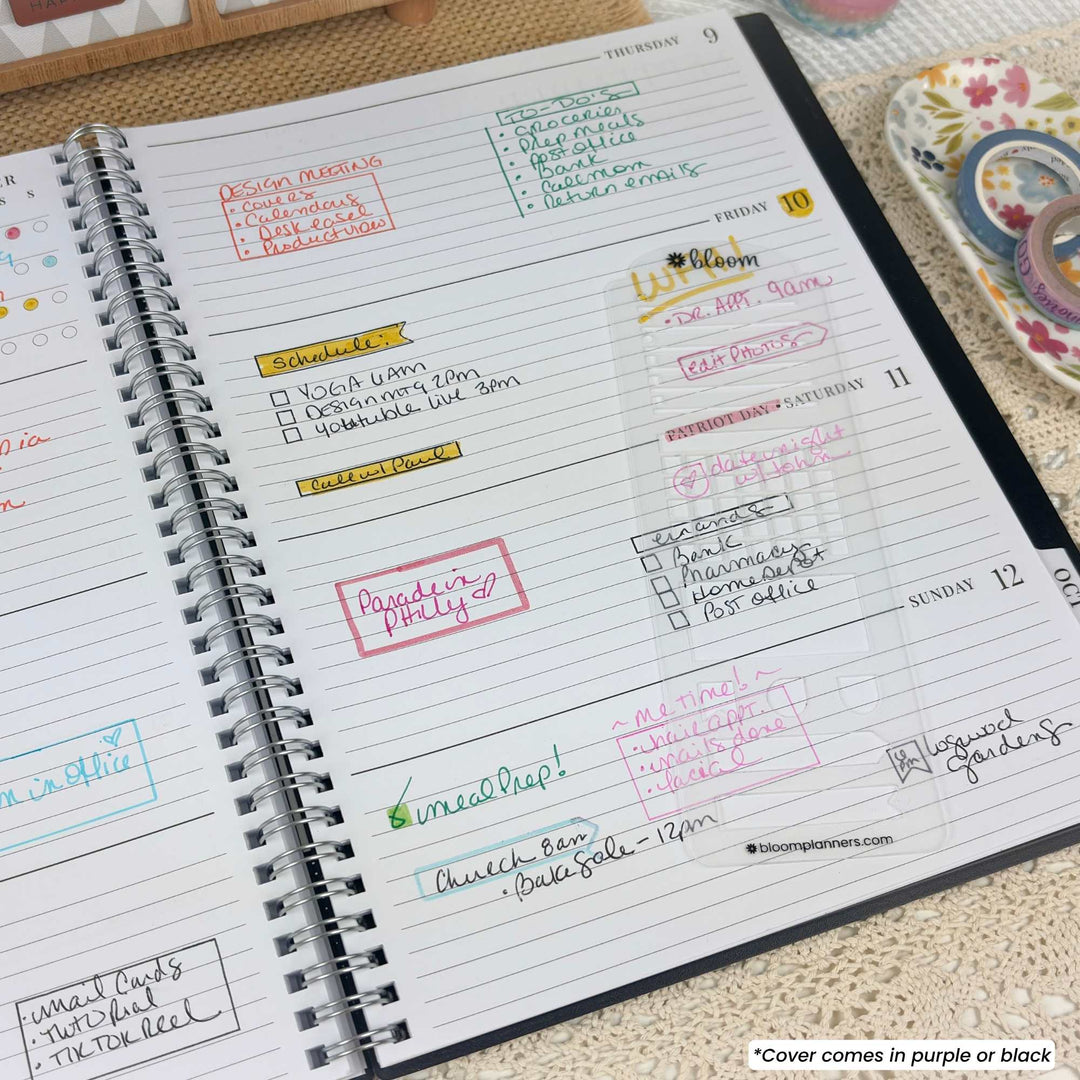 THURSDAY 9
TO-DO'S
• GROCERIES
• PREP MEALS
• POST OFFICE
• BANK
• CALL MOM
• RETURN EMAILS
DESIGN MEETING
• COVERS
• Calendars
• Desk easel
• Product video
FRIDAY 10
bloom
WFH!
• DR. APPT. 9am
edit PHOTOS
Schedule:
YOGA 6AM
DESIGN MTG 2PM
youtube live 3pm
Call w/ Paul
PATRIOT DAY • SATURDAY 11
date night
w/ John
errands
Bank
Pharmacy
Home Depot
POST OFFICE
Parade in
PHILLY
SUNDAY 12
OCT
~ me time! ~
• hair appt.
• nails done
• facial
meal Prep!
Church 8am
• Bake Sale - 12pm
Gardens
bloomplanners.com
in office
• mail Cards
• TUTORIAL
• TIKTOK REEL
*Cover comes in purple or black